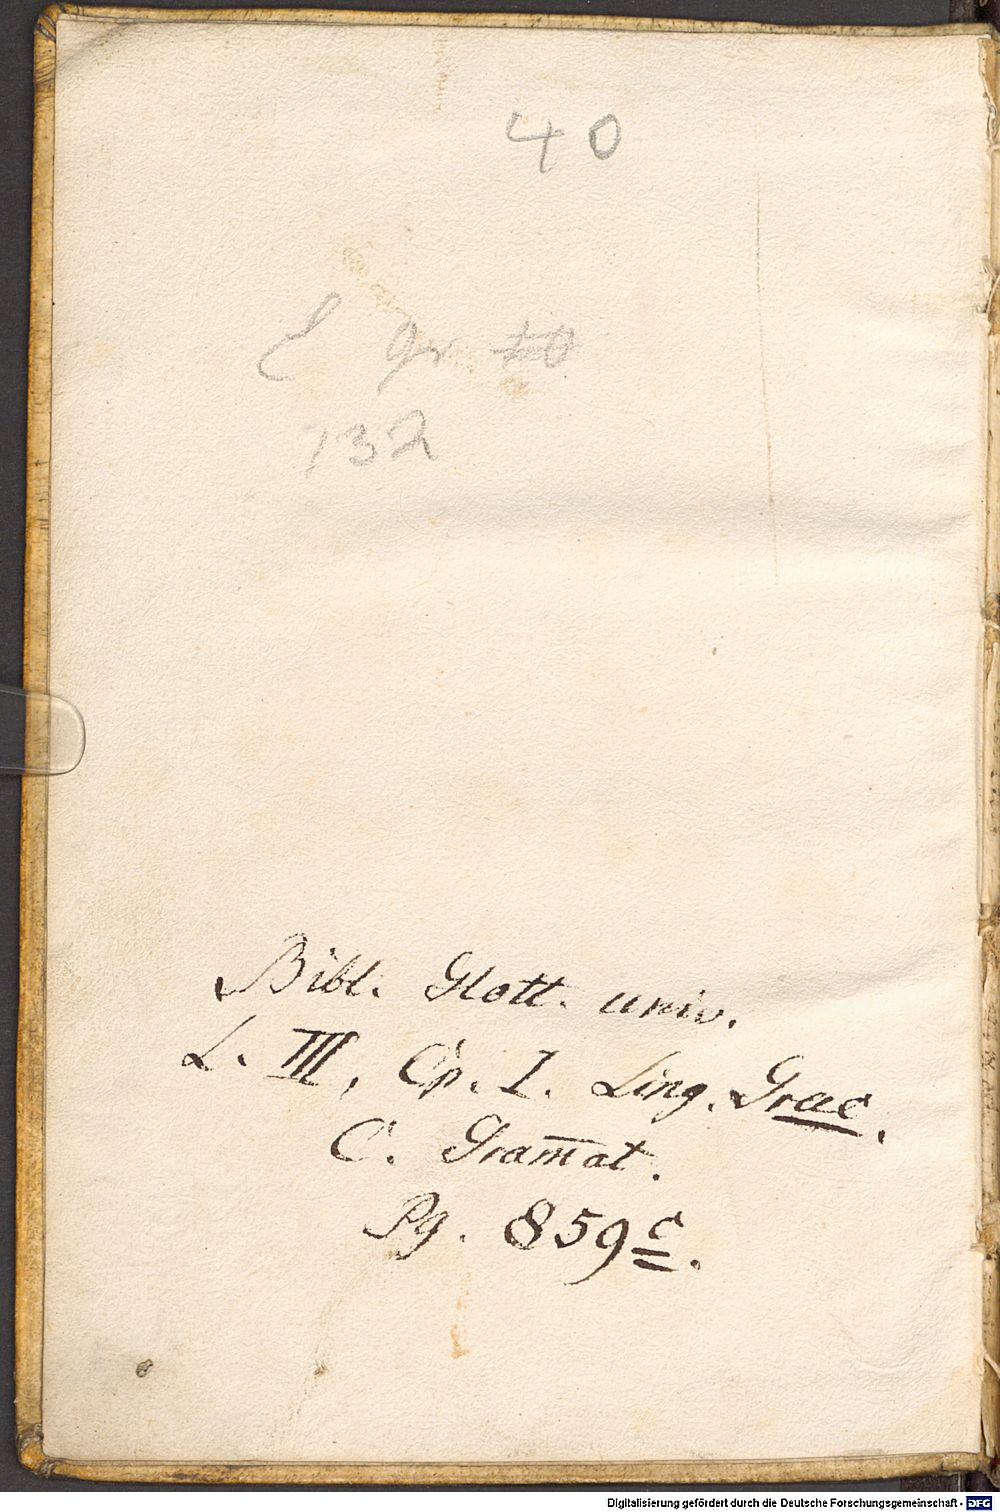 40
E gr
132
Bibl. Glott. univ.
L. III, Cp. I. Ling. Graec.
C. Gram̅at.
Pg. 859c.
Digitalisierung gefördert durch die Deutsche Forschungsgemeinschaft - DFG